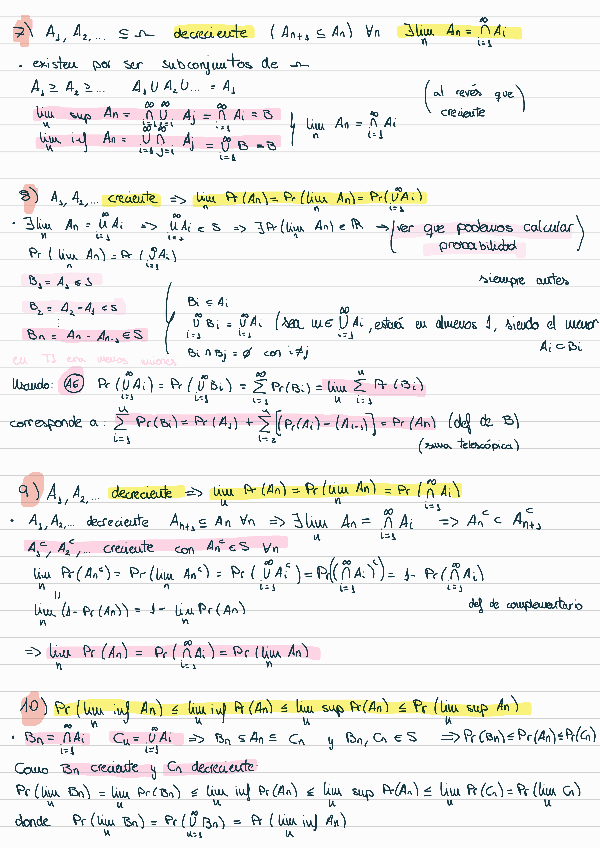 7) A₁, A₂,... ⊆ Ω decreciente (Aₙ₊₁ ⊆ Aₙ) ∀n ∃ lim_n Aₙ = ⋂_{i=1}^∞ Ai
· existen por ser subconjuntos de Ω
A₁ ≥ A₂ ≥ ... A₁ ∪ A₂ ∪ ... = A₁
lim_n sup Aₙ = ⋂_{i=1}^∞ ⋃_{j=i}^∞ Aj = ⋂_{i=1}^∞ Ai = B
lim_n inf Aₙ = ⋃_{i=1}^∞ ⋂_{j=i}^∞ Aj = ⋃_{i=1}^∞ B = B
lim_n Aₙ = ⋂_{i=1}^∞ Ai
(al revés que creciente)
8) A₁, A₂,... creciente => lim_n Pr(Aₙ) = Pr(lim_n Aₙ) = Pr(⋃_{i=1}^∞ Ai)
· ∃ lim_n Aₙ = ⋃_{i=1}^∞ Ai => ⋃_{i=1}^∞ Ai ∈ S => ∃ Pr(lim_n Aₙ) ∈ ℝ → (ver que podemos calcular probabilidad)
Pr(lim_n Aₙ) = Pr(⋃_{i=1}^∞ Ai)
B₁ = A₁ ∈ S
B₂ = A₂ - A₁ ∈ S
⋮
Bₙ = Aₙ - Aₙ₋₁ ∈ S
siempre antes
Bi ⊆ Ai
⋃_{i=1}^∞ Bi = ⋃_{i=1}^∞ Ai (sea w ∈ ⋃_{i=1}^∞ Ai, estará en almenos 1, siendo el menor Ai ⊂ Bi
Bi ∩ Bj = ∅ con i ≠ j
en T3 era menos uniones
Usando: A5 Pr(⋃_{i=1}^∞ Ai) = Pr(⋃_{i=1}^∞ Bi) = ∑_{i=1}^∞ Pr(Bi) = lim_n ∑_{i=1}^n Pr(Bi)
corresponde a: ∑_{i=1}^n Pr(Bi) = Pr(A₁) + ∑_{i=2}^n [Pr(Ai) - (Ai₋₁)] = Pr(Aₙ) (def de B)
(suma telescópica)
9) A₁, A₂,... decreciente => lim_n Pr(Aₙ) = Pr(lim_n Aₙ) = Pr(⋂_{i=1}^∞ Ai)
· A₁, A₂,... decreciente Aₙ₊₁ ⊆ Aₙ ∀n => ∃ lim_n Aₙ = ⋂_{i=1}^∞ Ai => Aₙᶜ ⊂ Aₙ₊₁ᶜ
A₁ᶜ, A₂ᶜ,... creciente con Aₙᶜ ∈ S ∀n
lim_n Pr(Aₙᶜ) = Pr(lim_n Aₙᶜ) = Pr(⋃_{i=1}^∞ Aiᶜ) = Pr((⋂_{i=1}^∞ Ai)ᶜ) = 1 - Pr(⋂_{i=1}^∞ Ai)
||
lim_n (1 - Pr(Aₙ)) = 1 - lim_n Pr(Aₙ)
def de complementario
=> lim_n Pr(Aₙ) = Pr(⋂_{i=1}^∞ Ai) = Pr(lim_n Aₙ)
10) Pr(lim_n inf Aₙ) ≤ lim_n inf Pr(Aₙ) ≤ lim_n sup Pr(Aₙ) ≤ Pr(lim_n sup Aₙ)
· Bₙ = ⋂_{i=1}^∞ Ai Cₙ = ⋃_{i=1}^∞ Ai => Bₙ ⊆ Aₙ ⊆ Cₙ y Bₙ, Cₙ ∈ S => Pr(Bₙ) ≤ Pr(Aₙ) ≤ Pr(Cₙ)
Como Bₙ creciente y Cₙ decreciente
Pr(lim_n Bₙ) = lim_n Pr(Bₙ) ≤ lim_n inf Pr(Aₙ) ≤ lim_n sup Pr(Aₙ) ≤ lim_n Pr(Cₙ) = Pr(lim_n Cₙ)
donde Pr(lim_n Bₙ) = Pr(⋃_{n=1}^∞ Bₙ) = Pr(lim_n inf Aₙ)